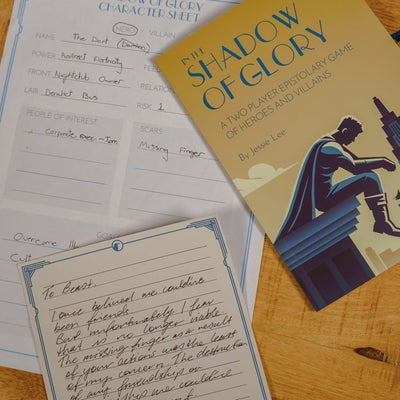 SHADOW OF GLORY
CHARACTER SHEET
NAME The Dart (Damien)
HERO / VILLAIN
POWER
FRONT Nightclub Owner
LAIR Derelict Bus
RELATION
RISK 1
PEOPLE OF INTEREST
Corporate exec - Tom
SCARS
Missing finger
Overcome
Cult
IN THE
SHADOW
OF GLORY
A TWO PLAYER EPISTOLARY GAME
OF HEROES AND VILLAINS
By Jessie Lee
To Beast,
I once believed we could've
been friends.
But unfortunately I fear
that is no longer viable.
The missing finger as a result
of your actions was the least
of my concern. The destruction
of any friendship or
we could've